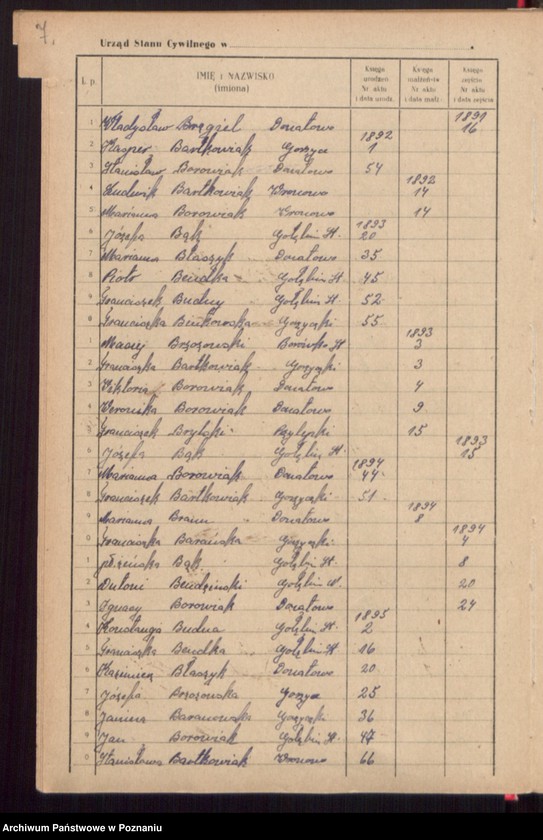 7.
Urząd Stanu Cywilnego w
L. p. IMIĘ i NAZWISKO (imiona) Księga urodzeń Nr aktu i data urodz. Księga małżeństw Nr aktu i data małż. Księga zejścia Nr aktu i data zejścia
1891
1 Władysław Brzgiel Donatowo 16
1892
2 Kasper Bartkowiak Gorzyce 1
3 Stanisław Borowiak Donatowo 54
1892
4 Ludwik Bartkowiak Wronowo 14
5 Marianna Borowiak Wronowo 14
1893
6 Józefa Bąk Gołębin St. 20
7 Marianna Błaszyk Donatowo 35
8 Piotr Bendka Gołębin St 45
9 Franciszek Budny Gołębin St 52
0 Franciszka Gorzyczki 55
1893
1 Maciej Brzozowski St 3
2 Franciszka Bartkowiak Gorzyczki 3
3 Wiktoria Borowiak Donatowo 4
4 Weronika Borowiak Donatowo 9
5 Franciszek 15
1893
6 Józefa Bąk Gołębin St. 15
1894
7 Marianna Borowiak Donatowo 44
8 Franciszek Bartkowiak Gorzyczki 51
1894
9 Marianna Braun Donatowo 8
1894
0 Franciszka Barańska Gorzyczki 4
1 Bąk Gołębin St. 8
2 Antoni Bendziński Gołębin 20
3 Ignacy Borowiak Donatowo 24
1895
4 Konstancja Budna Gołębin St 2
5 Franciszka Bendka Gołębin St 16
6 Kazimierz Błaszyk Donatowo 20
7 Józefa Brzozowska Gorzyce 25
8 Janina Baranowska Gorzyczki 36
9 Jan Borowiak Gołębin St. 47
0 Stanisława Bartkowiak Wronowo 66
Archiwum Państwowe w Poznaniu